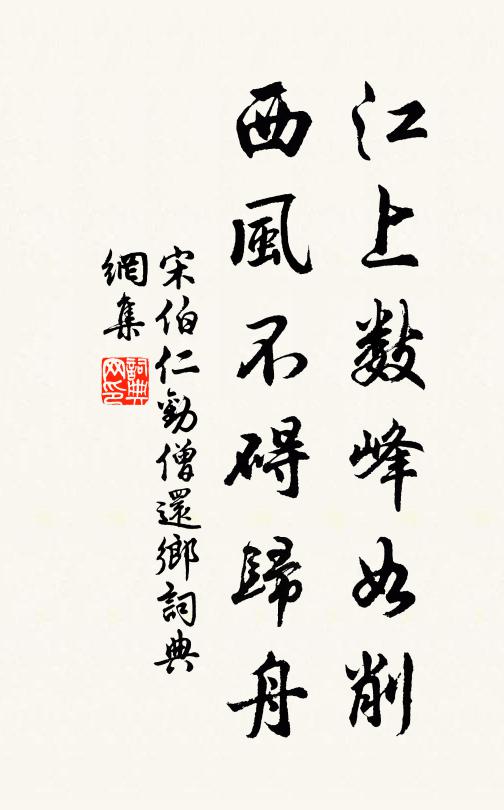 江上数峰如削
西風不碍歸舟
宋伯仁勸僧還鄉詞典
網集
詞典
网印